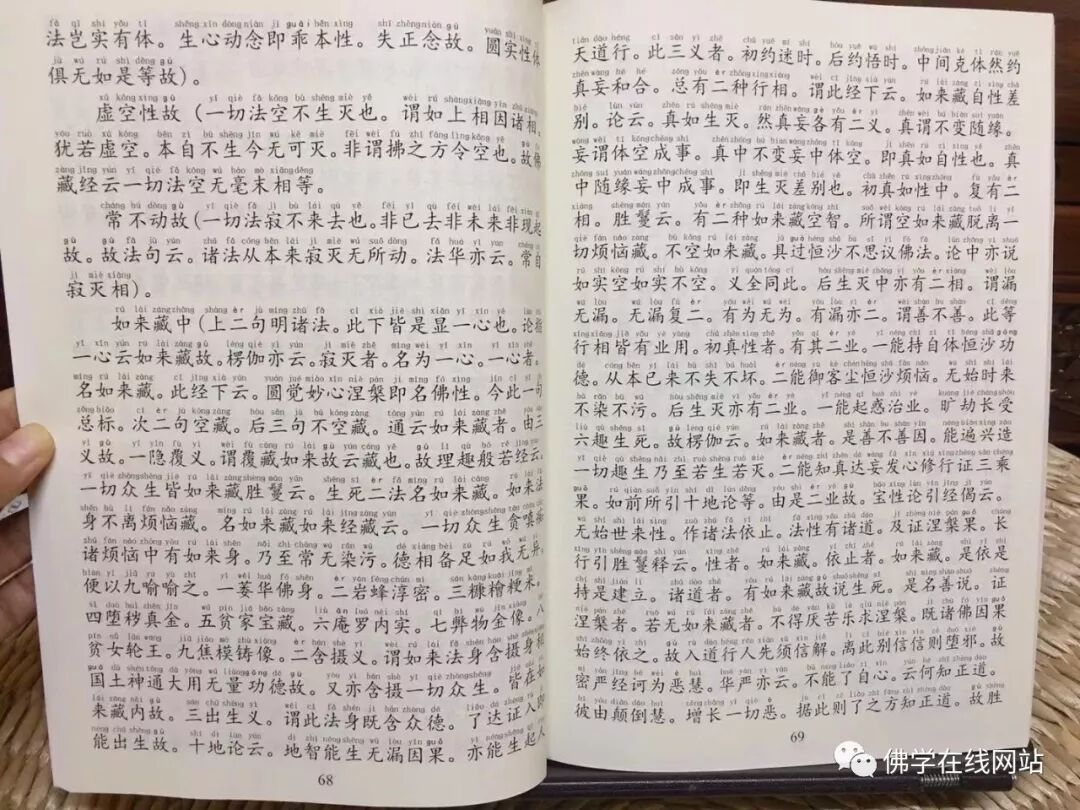 法岂实有体。生心动念即乖本性。失正念故。圆实性体
俱无如是等故）。
虚空性故（一切法空不生灭也。谓如上相因诸相。
犹若虚空。本自不生今无可灭。非谓拂之方令空也。故佛
藏经云一切法空无毫末相等。
常不动故（一切法寂不来去也。非已去非未来非现起
故。故法句云。诸法从本来寂灭无所动。法华亦云。常自
寂灭相）。
如来藏中（上二句明诸法。此下皆是显一心也。论指
一心云如来藏故。楞伽亦云。寂灭者。名为一心。一心者。
名如来藏。此经下云。圆觉妙心涅槃即名佛性。今此一句
总标。次二句空藏。后三句不空藏。通云如来藏者。由三
义故。一隐覆义。谓覆藏如来故云藏也。故理趣般若经云。
一切众生皆如来藏胜鬘云。生死二法名如来藏。如来法
身不离烦恼藏。名如来藏如来经藏云。一切众生贪嗔痴
诸烦恼中有如来身。乃至常无染污。德相备足如我无异。
便以九喻喻之。一萎华佛身。二岩蜂淳密。三糠糩粳米。
四堕秽真金。五贫家宝藏。六庵罗内实。七弊物金像。八
贫女轮王。九焦模铸像。二含摄义。谓如来法身含摄身相
国土神通大用无量功德故。又亦含摄一切众生。皆在如
来藏内故。三出生义。谓此法身既含众德。了达证入即
能出生故。十地论云。地智能生无漏因果。亦能生起人
68
天道行。此三义者。初约迷时。后约悟时。中间克体然约
真妄和合。总有二种行相。谓此经下云。如来藏自性差
别。论云。真如生灭。然真妄各有二义。真谓不变随缘。
妄谓体空成事。真中不变妄中体空。即真如自性也。真
中随缘妄中成事。即生灭差别也。初真如性中。复有二
相。胜鬘云。有二种如来藏空智。所谓空如来藏脱离一
切烦恼藏。不空如来藏。具过恒沙不思议佛法。论中亦说
如实空如实不空。义全同此。后生灭中亦有二相。谓漏
无漏。无漏复二。有为无为。有漏亦二。谓善不善。此等
行相皆有业用。初真性者。有其二业。一能持自体恒沙功
德。从本已来不失不坏。二能御客尘恒沙烦恼。无始时来
不染不污。后生灭亦有二业。一能起惑治业。旷劫长受
六趣生死。故楞伽云。如来藏者。是善不善因。能遍兴造
一切趣生乃至若生若灭。二能知真达妄发心修行证三乘
果。如前所引十地论等。由是二业故。宝性论引经偈云。
无始世来性。作诸法依止。法性有诸道。及证涅槃果。长
行引胜鬘释云。性者。如来藏。依止者。如来藏。是依是
持是建立。诸道者。有如来藏故说生死。是名善说。证
涅槃者。若无如来藏者。不得厌苦乐求涅槃。既诸佛因果
始终依之。故入道行人先须信解。离此别信信则堕邪。故
密严经诃为恶慧。华严亦云。不能了自心。云何知正道。
彼由颠倒慧。增长一切恶。据此则了之方知正道。故胜
69
佛学在线网站